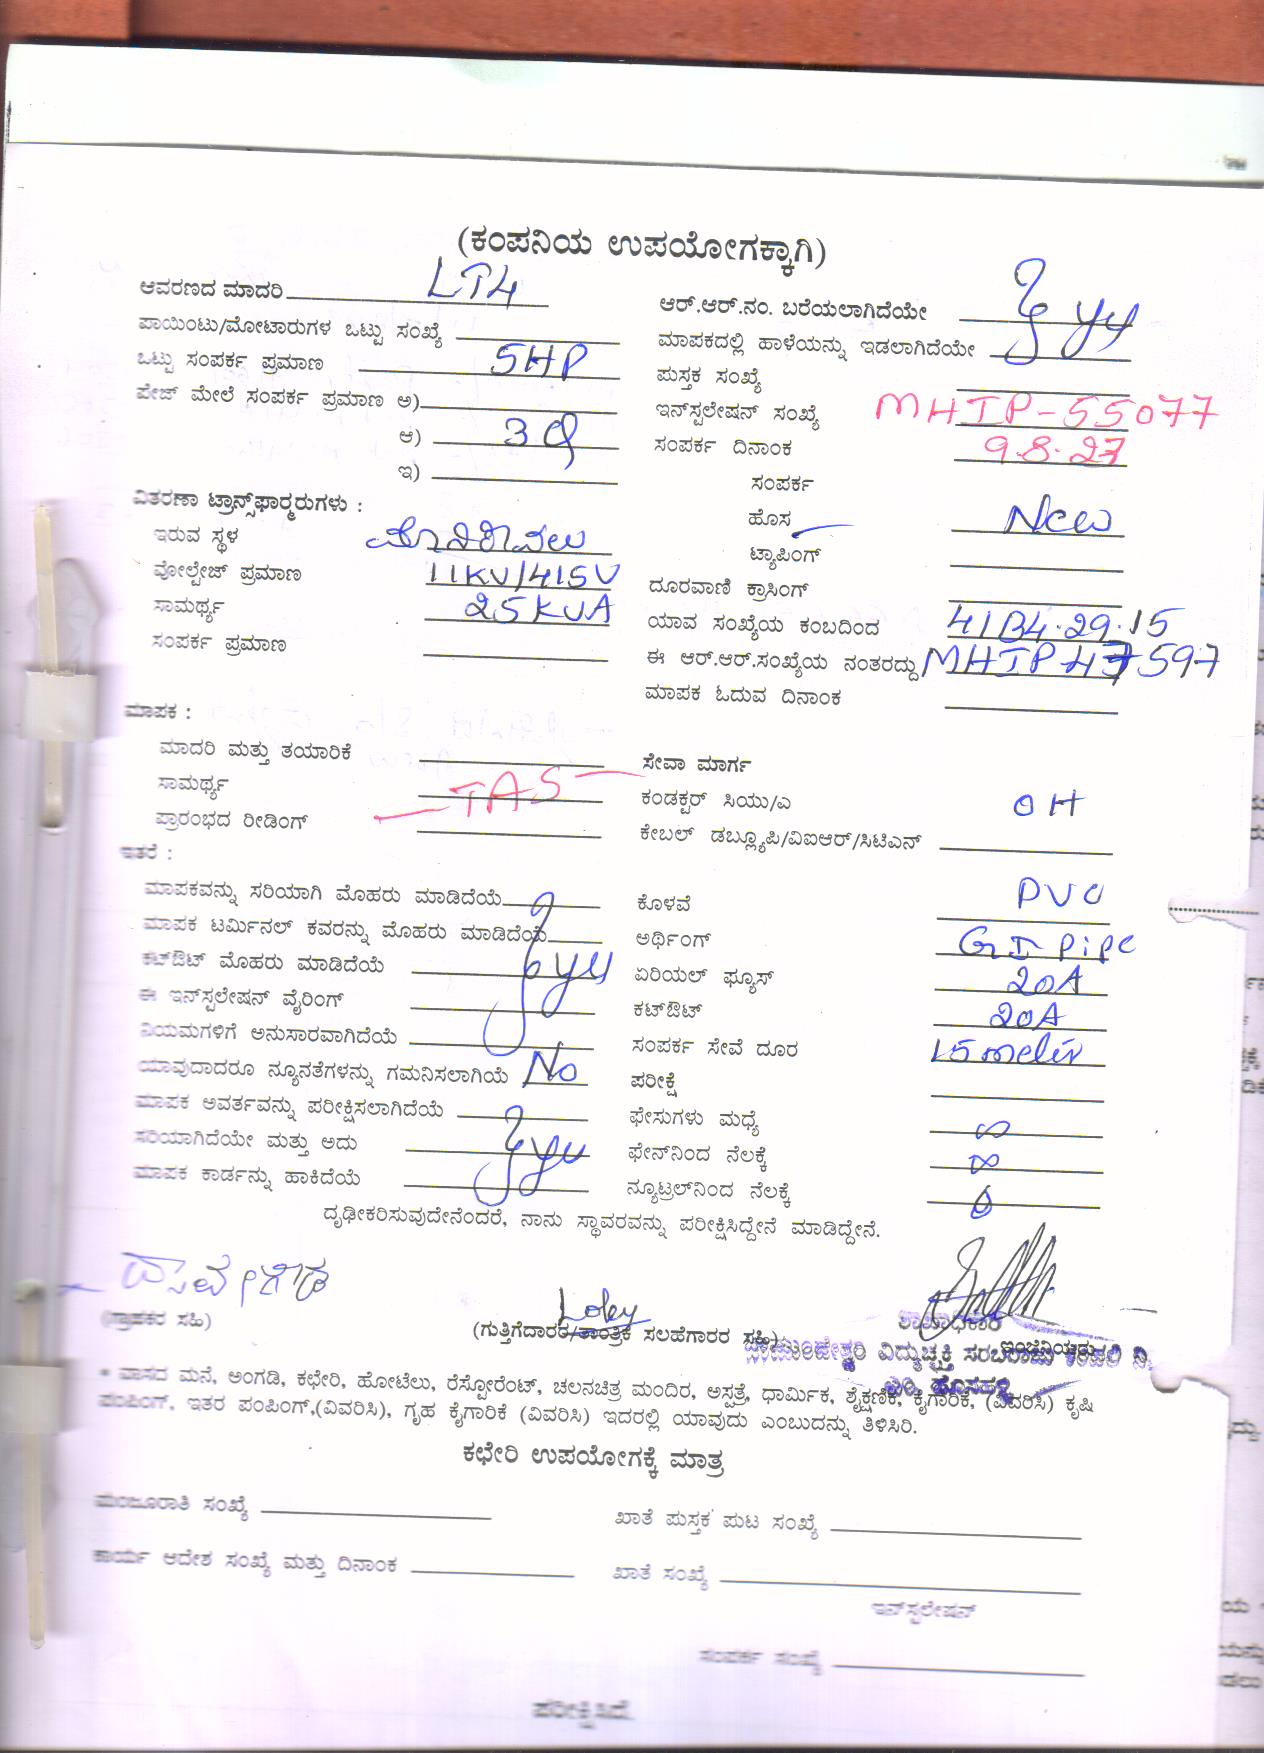 (ಕಂಪನಿಯ ಉಪಯೋಗಕ್ಕಾಗಿ)
ಆವರಣದ ಮಾದರಿ LT4
ಪಾಯಿಂಟು/ಮೋಟಾರುಗಳ ಒಟ್ಟು ಸಂಖ್ಯೆ
ಒಟ್ಟು ಸಂಪರ್ಕ ಪ್ರಮಾಣ 5HP
ಪೇಜ್ ಮೇಲೆ ಸಂಪರ್ಕ ಪ್ರಮಾಣ ಅ)
ಆ) 3 φ
ಇ)
ವಿತರಣಾ ಟ್ರಾನ್ಸ್‌ಫಾರ್‍ಮರುಗಳು :
ಇರುವ ಸ್ಥಳ
ವೋಲ್ಟೇಜ್ ಪ್ರಮಾಣ 11KV/415V
ಸಾಮರ್ಥ್ಯ 25KVA
ಸಂಪರ್ಕ ಪ್ರಮಾಣ
ಆರ್.ಆರ್.ನಂ. ಬರೆಯಲಾಗಿದೆಯೇ
ಮಾಪಕದಲ್ಲಿ ಹಾಳೆಯನ್ನು ಇಡಲಾಗಿದೆಯೇ
ಪುಸ್ತಕ ಸಂಖ್ಯೆ
ಇನ್‌ಸ್ಟಲೇಷನ್ ಸಂಖ್ಯೆ MHIP-55077
ಸಂಪರ್ಕ ದಿನಾಂಕ 9.8.23
ಸಂಪರ್ಕ
ಹೊಸ New
ಟ್ಯಾಪಿಂಗ್
ದೂರವಾಣಿ ಕ್ರಾಸಿಂಗ್
ಯಾವ ಸಂಖ್ಯೆಯ ಕಂಬದಿಂದ 41B4.29.15
ಈ ಆರ್.ಆರ್.ಸಂಖ್ಯೆಯ ನಂತರದ್ದು MHIP
ಮಾಪಕ ಓದುವ ದಿನಾಂಕ
ಮಾಪಕ :
ಮಾದರಿ ಮತ್ತು ತಯಾರಿಕೆ
ಸಾಮರ್ಥ್ಯ TAS
ಪ್ರಾರಂಭದ ರೀಡಿಂಗ್
ಸೇವಾ ಮಾರ್ಗ
ಕಂಡಕ್ಟರ್ ಸಿಯು/ಎ OH
ಕೇಬಲ್ ಡಬ್ಲ್ಯೂಪಿ/ವಿಐಆರ್/ಸಿಟಿಎನ್
ಇತರೆ :
ಮಾಪಕವನ್ನು ಸರಿಯಾಗಿ ಮೊಹರು ಮಾಡಿದೆಯೆ
ಮಾಪಕ ಟರ್ಮಿನಲ್ ಕವರನ್ನು ಮೊಹರು ಮಾಡಿದೆಯೆ
ಕಟ್‌ಔಟ್ ಮೊಹರು ಮಾಡಿದೆಯೆ
ಈ ಇನ್‌ಸ್ಟಲೇಷನ್ ವೈರಿಂಗ್
ನಿಯಮಗಳಿಗೆ ಅನುಸಾರವಾಗಿದೆಯೆ
ಯಾವುದಾದರೂ ನ್ಯೂನತೆಗಳನ್ನು ಗಮನಿಸಲಾಗಿಯೆ No
ಮಾಪಕ ಅವರ್ತವನ್ನು ಪರೀಕ್ಷಿಸಲಾಗಿದೆಯೆ
ಸರಿಯಾಗಿದೆಯೇ ಮತ್ತು ಅದು
ಮಾಪಕ ಕಾರ್ಡನ್ನು ಹಾಕಿದೆಯೆ
ಕೊಳವೆ PVC
ಅರ್ಥಿಂಗ್ GI Pipe
ಏರಿಯಲ್ ಫ್ಯೂಸ್ 20A
ಕಟ್‌ಔಟ್ 20A
ಸಂಪರ್ಕ ಸೇವೆ ದೂರ 15 meter
ಪರೀಕ್ಷೆ
ಫೇಸುಗಳು ಮಧ್ಯೆ ∞
ಫೇನ್‌ನಿಂದ ನೆಲಕ್ಕೆ ∞
ನ್ಯೂಟ್ರಲ್‌ನಿಂದ ನೆಲಕ್ಕೆ 0
ದೃಢೀಕರಿಸುವುದೇನೆಂದರೆ, ನಾನು ಸ್ಥಾವರವನ್ನು ಪರೀಕ್ಷಿಸಿದ್ದೇನೆ ಮಾಡಿದ್ದೇನೆ.
(ಗ್ರಾಹಕರ ಸಹಿ)
(ಗುತ್ತಿಗೆದಾರರ/ತಾಂತ್ರಿಕ ಸಲಹೆಗಾರರ ಸಹಿ)
ಇಂಜಿನಿಯರು
ಶಾಖಾಧಿಕಾರಿ
ಚಾಮುಂಡೇಶ್ವರಿ ವಿದ್ಯುಚ್ಛಕ್ತಿ ಸರಬರಾಜು ಕಂಪನಿ ನಿ.
* ವಾಸದ ಮನೆ, ಅಂಗಡಿ, ಕಛೇರಿ, ಹೋಟೆಲು, ರೆಸ್ಟೋರೆಂಟ್, ಚಲನಚಿತ್ರ ಮಂದಿರ, ಅಸ್ಪತ್ರೆ, ಧಾರ್ಮಿಕ, ಶೈಕ್ಷಣಿಕ, ಕೈಗಾರಿಕೆ, (ವಿವರಿಸಿ) ಕೃಷಿ
ಪಂಪಿಂಗ್, ಇತರ ಪಂಪಿಂಗ್,(ವಿವರಿಸಿ), ಗೃಹ ಕೈಗಾರಿಕೆ (ವಿವರಿಸಿ) ಇದರಲ್ಲಿ ಯಾವುದು ಎಂಬುದನ್ನು ತಿಳಿಸಿರಿ.
ಕಛೇರಿ ಉಪಯೋಗಕ್ಕೆ ಮಾತ್ರ
ಮಂಜೂರಾತಿ ಸಂಖ್ಯೆ
ಖಾತೆ ಪುಸ್ತಕ ಪುಟ ಸಂಖ್ಯೆ
ಕಾರ್ಯ ಆದೇಶ ಸಂಖ್ಯೆ ಮತ್ತು ದಿನಾಂಕ
ಖಾತೆ ಸಂಖ್ಯೆ
ಇನ್‌ಸ್ಟಲೇಷನ್
ಸಂಪರ್ಕ ಸಂಖ್ಯೆ
ಪರೀಕ್ಷಿಸಿದೆ.